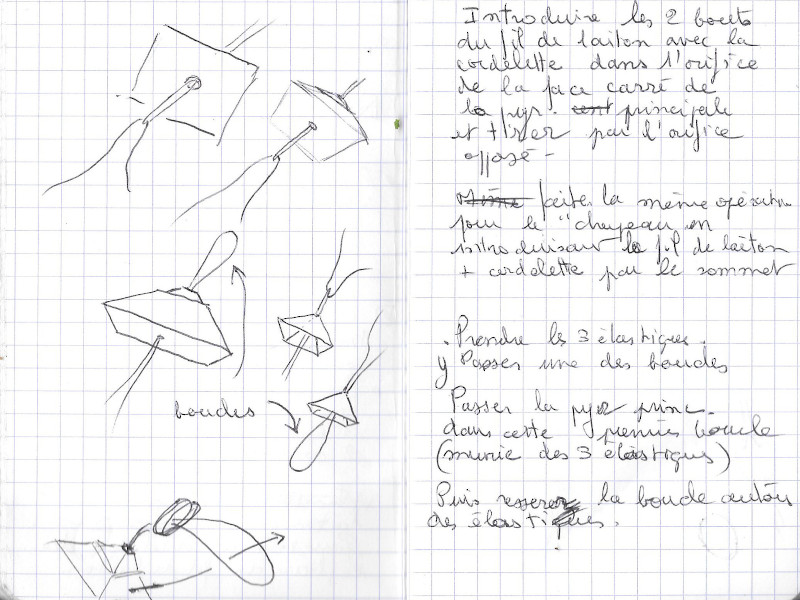 boucles
Introduire les 2 bouts
du fil de laiton avec la
cordelette dans l'orifice
de la face carré de
la pyr. principale
et tirer par l'orifice
opposé -
faites la même opération
pour le "chapeau en
introduisant le fil de laiton
+ cordelette par le sommet
. Prendre les 3 élastiques.
y Passer une des boucles
Passer la pyr princ.
dans cette première boucle
(munie des 3 élastiques)
Puis resserer la boucle autour
des élastiques.